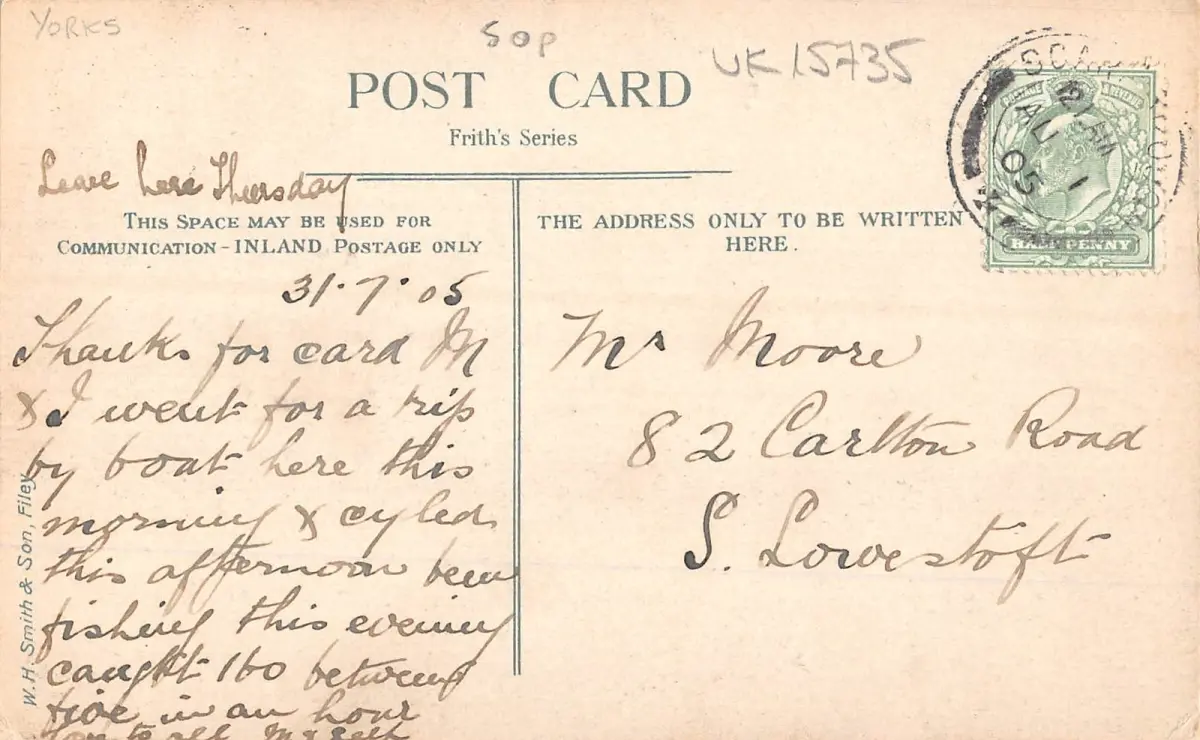 YORKS
50p
UK 15735
POST CARD
Frith's Series
Leave here Thursday
THIS SPACE MAY BE USED FOR
COMMUNICATION - INLAND POSTAGE ONLY
THE ADDRESS ONLY TO BE WRITTEN
HERE.
POSTAGE & REVENUE
HALFPENNY
AU 1
05
31.7.05
Thanks for card M
& I went for a trip
by boat here this
morning & cyled
this afternoon been
fishing this evening
caught 160 between
five in an hour
love to all M & Self
Mr Moore
82 Carlton Road
S. Lowestoft
W.H. Smith & Son, Filey